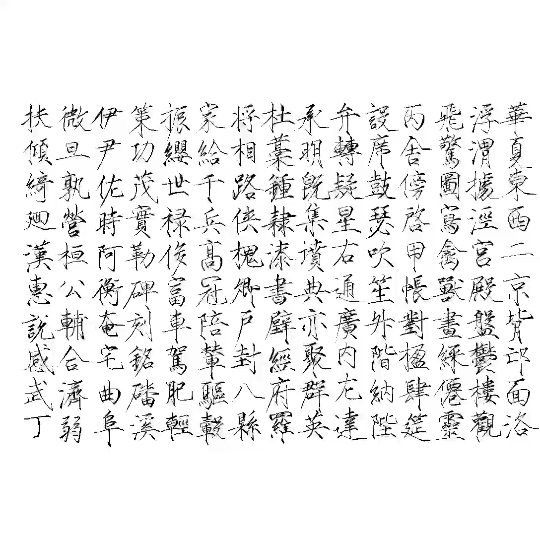 華夏東西二京背邙面洛
浮渭據涇宮殿盤鬱樓觀
飛驚圖寫禽獸畫綵僊靈
丙舍傍啓甲帳對楹肆筵
設席鼓瑟吹笙升階納陛
弁轉疑星右通廣內左達
承明既集墳典亦聚群英
杜藁鍾隸漆書壁經府羅
將相路俠槐卿戶封八縣
家給千兵高冠陪輦驅轂
振纓世祿侈富車駕肥輕
策功茂實勒碑刻銘磻溪
伊尹佐時阿衡奄宅曲阜
微旦孰營桓公輔合濟弱
扶傾綺廻漢惠說感武丁